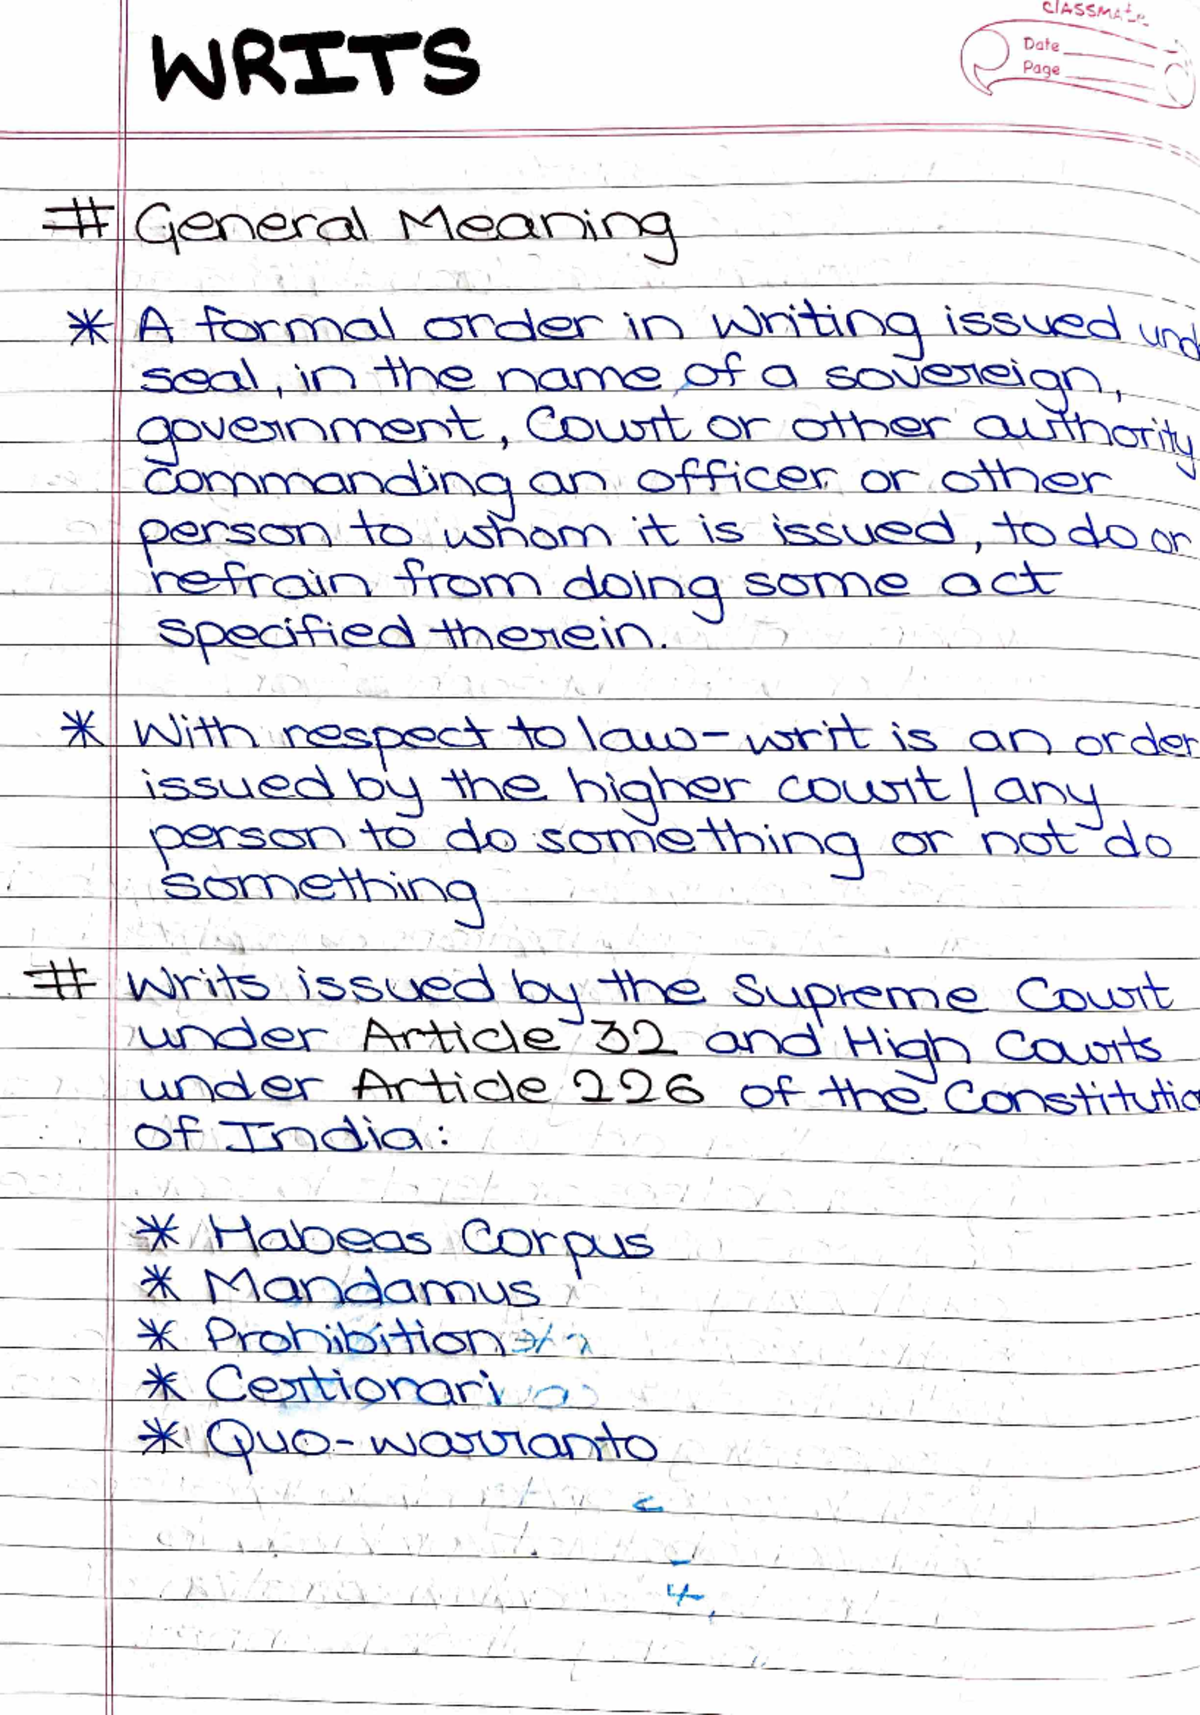 classmate
Date
Page
WRITS
# General Meaning
* A formal order in writing issued und
seal, in the name of a sovereign,
government, Court or other authority
commanding an officer or other
person to whom it is issued, to do or
refrain from doing some act
specified therein.
* With respect to law-writ is an order
issued by the higher court / any
person to do something or not do
something
# Writs issued by the Supreme Court
under Article 32 and High Courts
under Article 226 of the Constitutio
of India:
* Habeas Corpus
* Mandamus
* Prohibition
* Certiorari
* Quo-warranto